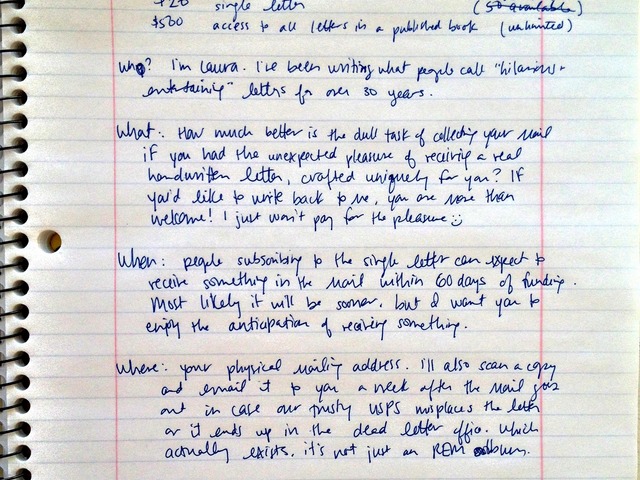 $20 single letter (50 available)
$500 access to all letters in a published book (unlimited)
Who? I'm Laura. I've been writing what people call "hilarious +
entertaining" letters for over 30 years.
What: How much better is the dull task of collecting your mail
if you had the unexpected pleasure of receiving a real
handwritten letter, crafted uniquely for you? If
you'd like to write back to me, you are more than
welcome! I just won't pay for the pleasure :)
When: people subscribing to the single letter can expect to
receive something in the mail within 60 days of funding.
Most likely it will be sooner, but I want you to
enjoy the anticipation of receiving something.
Where: your physical mailing address. I'll also scan a copy
and email it to you a week after the mail goes
out in case our trusty USPS misplaces the letter
or it ends up in the dead letter office. Which
actually exists, it's not just an REM album.